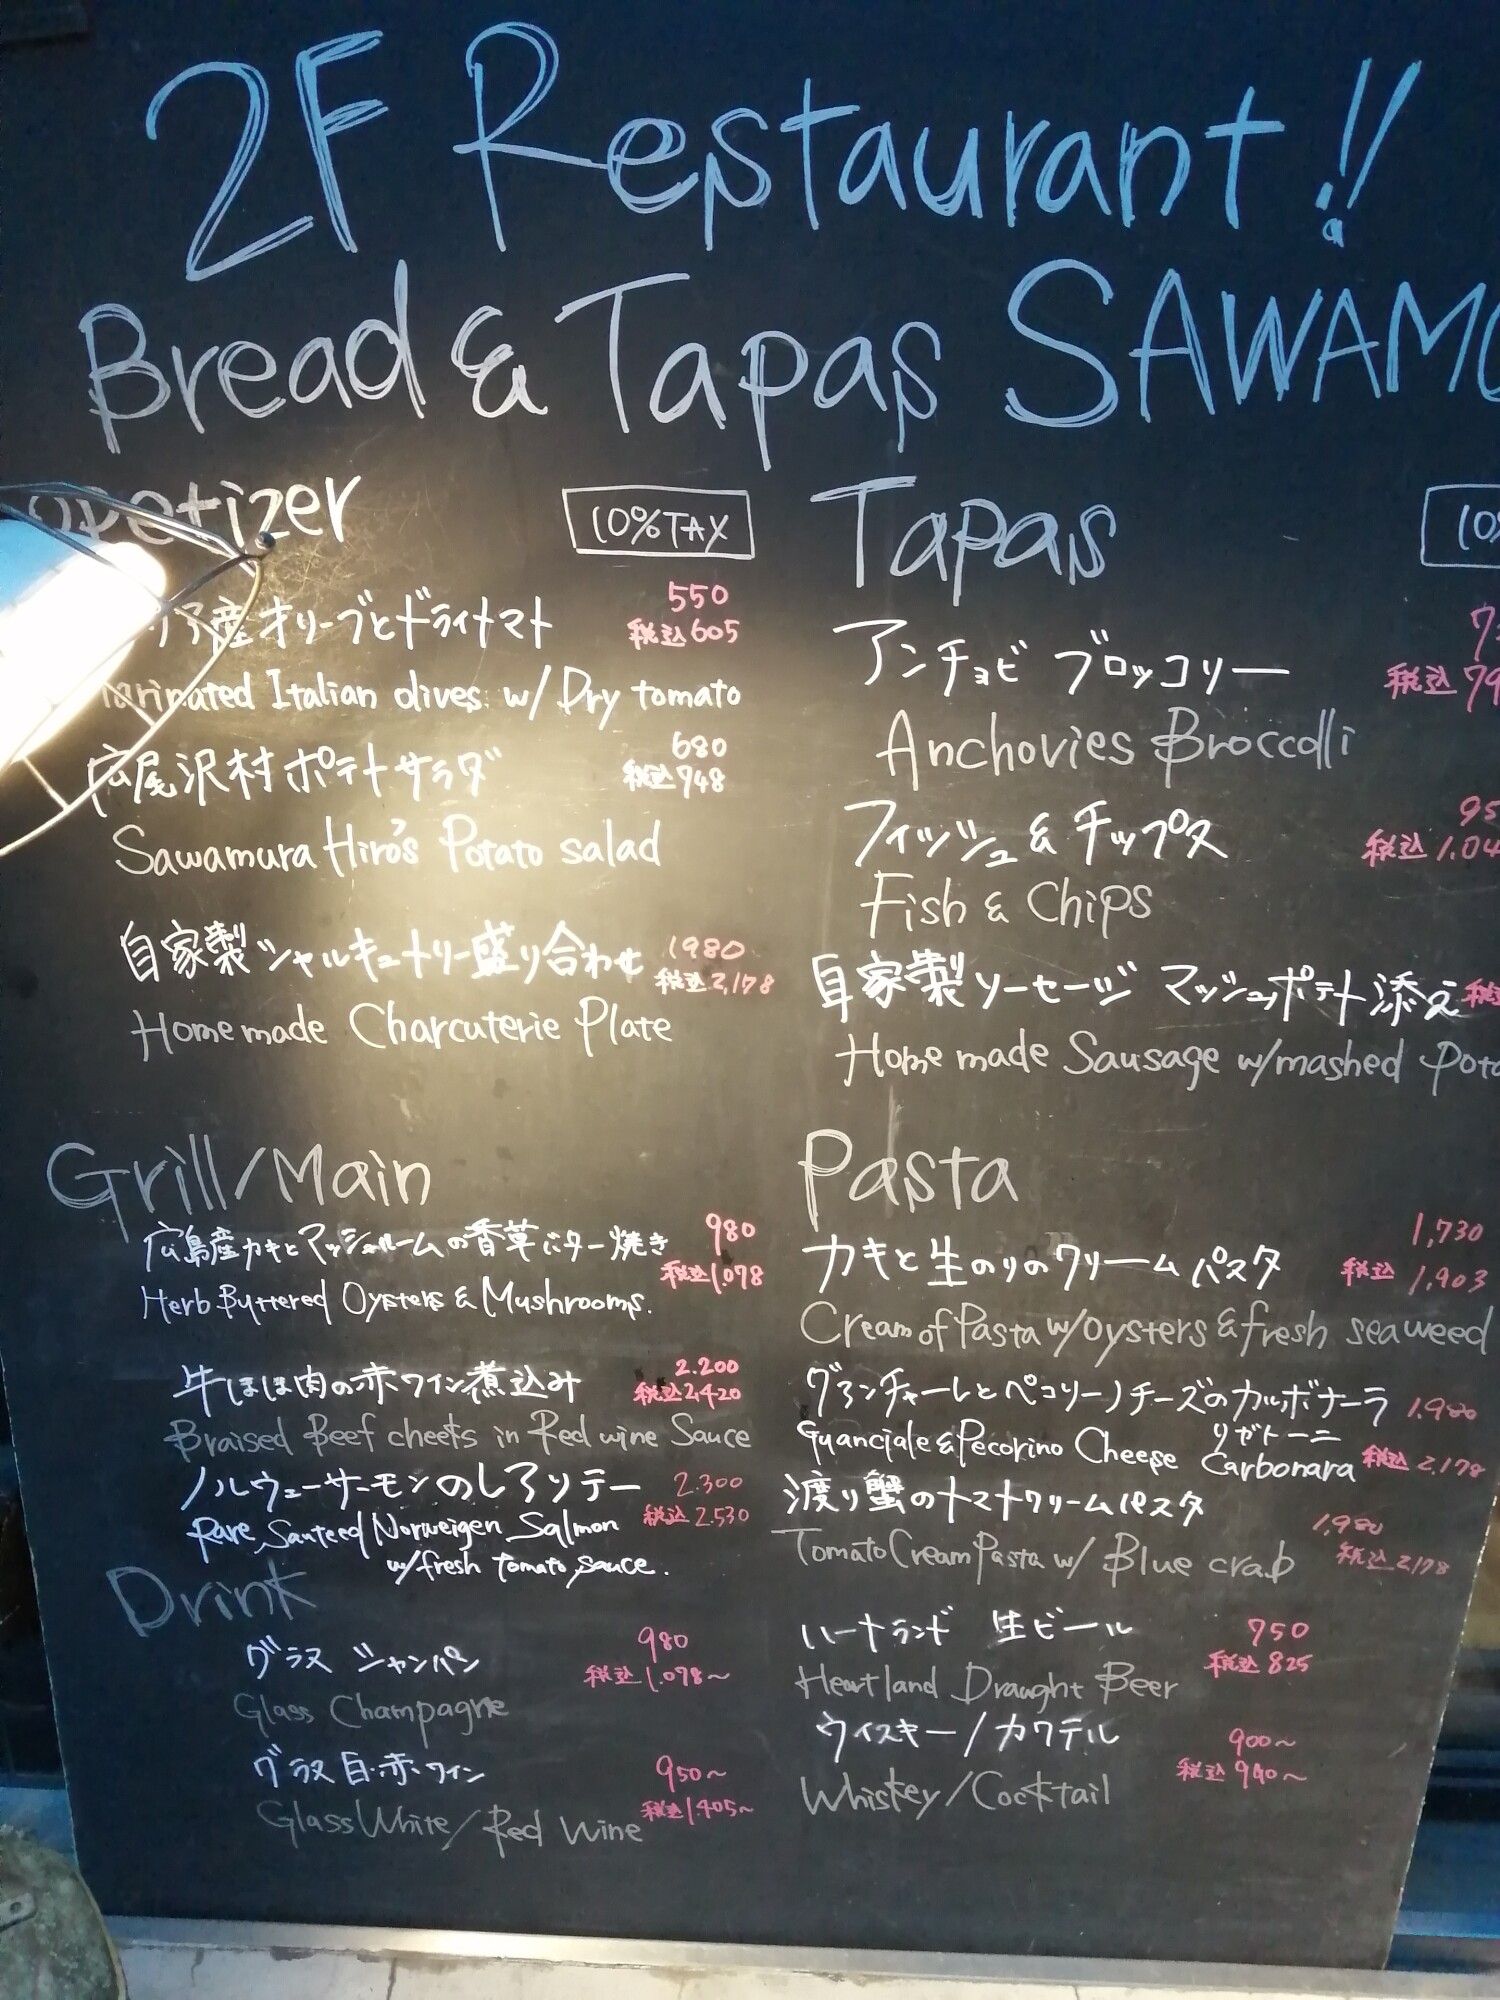 2F Restaurant!!
Bread & Tapas SAWAMU
petizer
10%TAX
産オリーブとドライトマト
550
税込605
Marinated Italian olives w/ Dry tomato
広尾沢村ポテトサラダ
680
税込748
Sawamura Hiro's Potato salad
自家製シャルキュトリー盛り合わせ
1980
税込2,178
Home made Charcuterie Plate
Tapas
アンチョビ ブロッコリー
税込79
Anchovies Broccolli
フィッシュ&チップス
95
税込1.04
Fish & Chips
自家製ソーセージ マッシュポテト添え
Home made Sausage w/mashed Pot
Grill/Main
広島産カキとマッシュルームの香草バター焼き
980
税込1,078
Herb Buttered Oysters & Mushrooms.
牛ほほ肉の赤ワイン煮込み
2.200
税込2,420
Braised Beef cheeks in Red wine Sauce
ノルウェーサーモンのレアソテー
2.300
税込2.530
Rare Sauteed Norweigen Salmon
w/fresh tomato sauce.
Pasta
カキと生のりのクリームパスタ
1,730
税込1,903
Cream of Pasta w/oysters & fresh seaweed
グアンチャーレとペコリーノチーズのカルボナーラ
1.980
リガトーニ
Guanciale & Pecorino Cheese Carbonara
税込2,178
渡り蟹のトマトクリームパスタ
1,980
税込2,178
Tomato Cream Pasta w/ Blue crab
Drink
グラス シャンパン
980
税込1.078~
Glass Champagne
グラス白・赤ワイン
950~
税込1.405~
Glass White/Red Wine
ハートランド 生ビール
750
税込825
Heartland Draught Beer
ウィスキー/カクテル
900~
税込990~
Whiskey/Cocktail